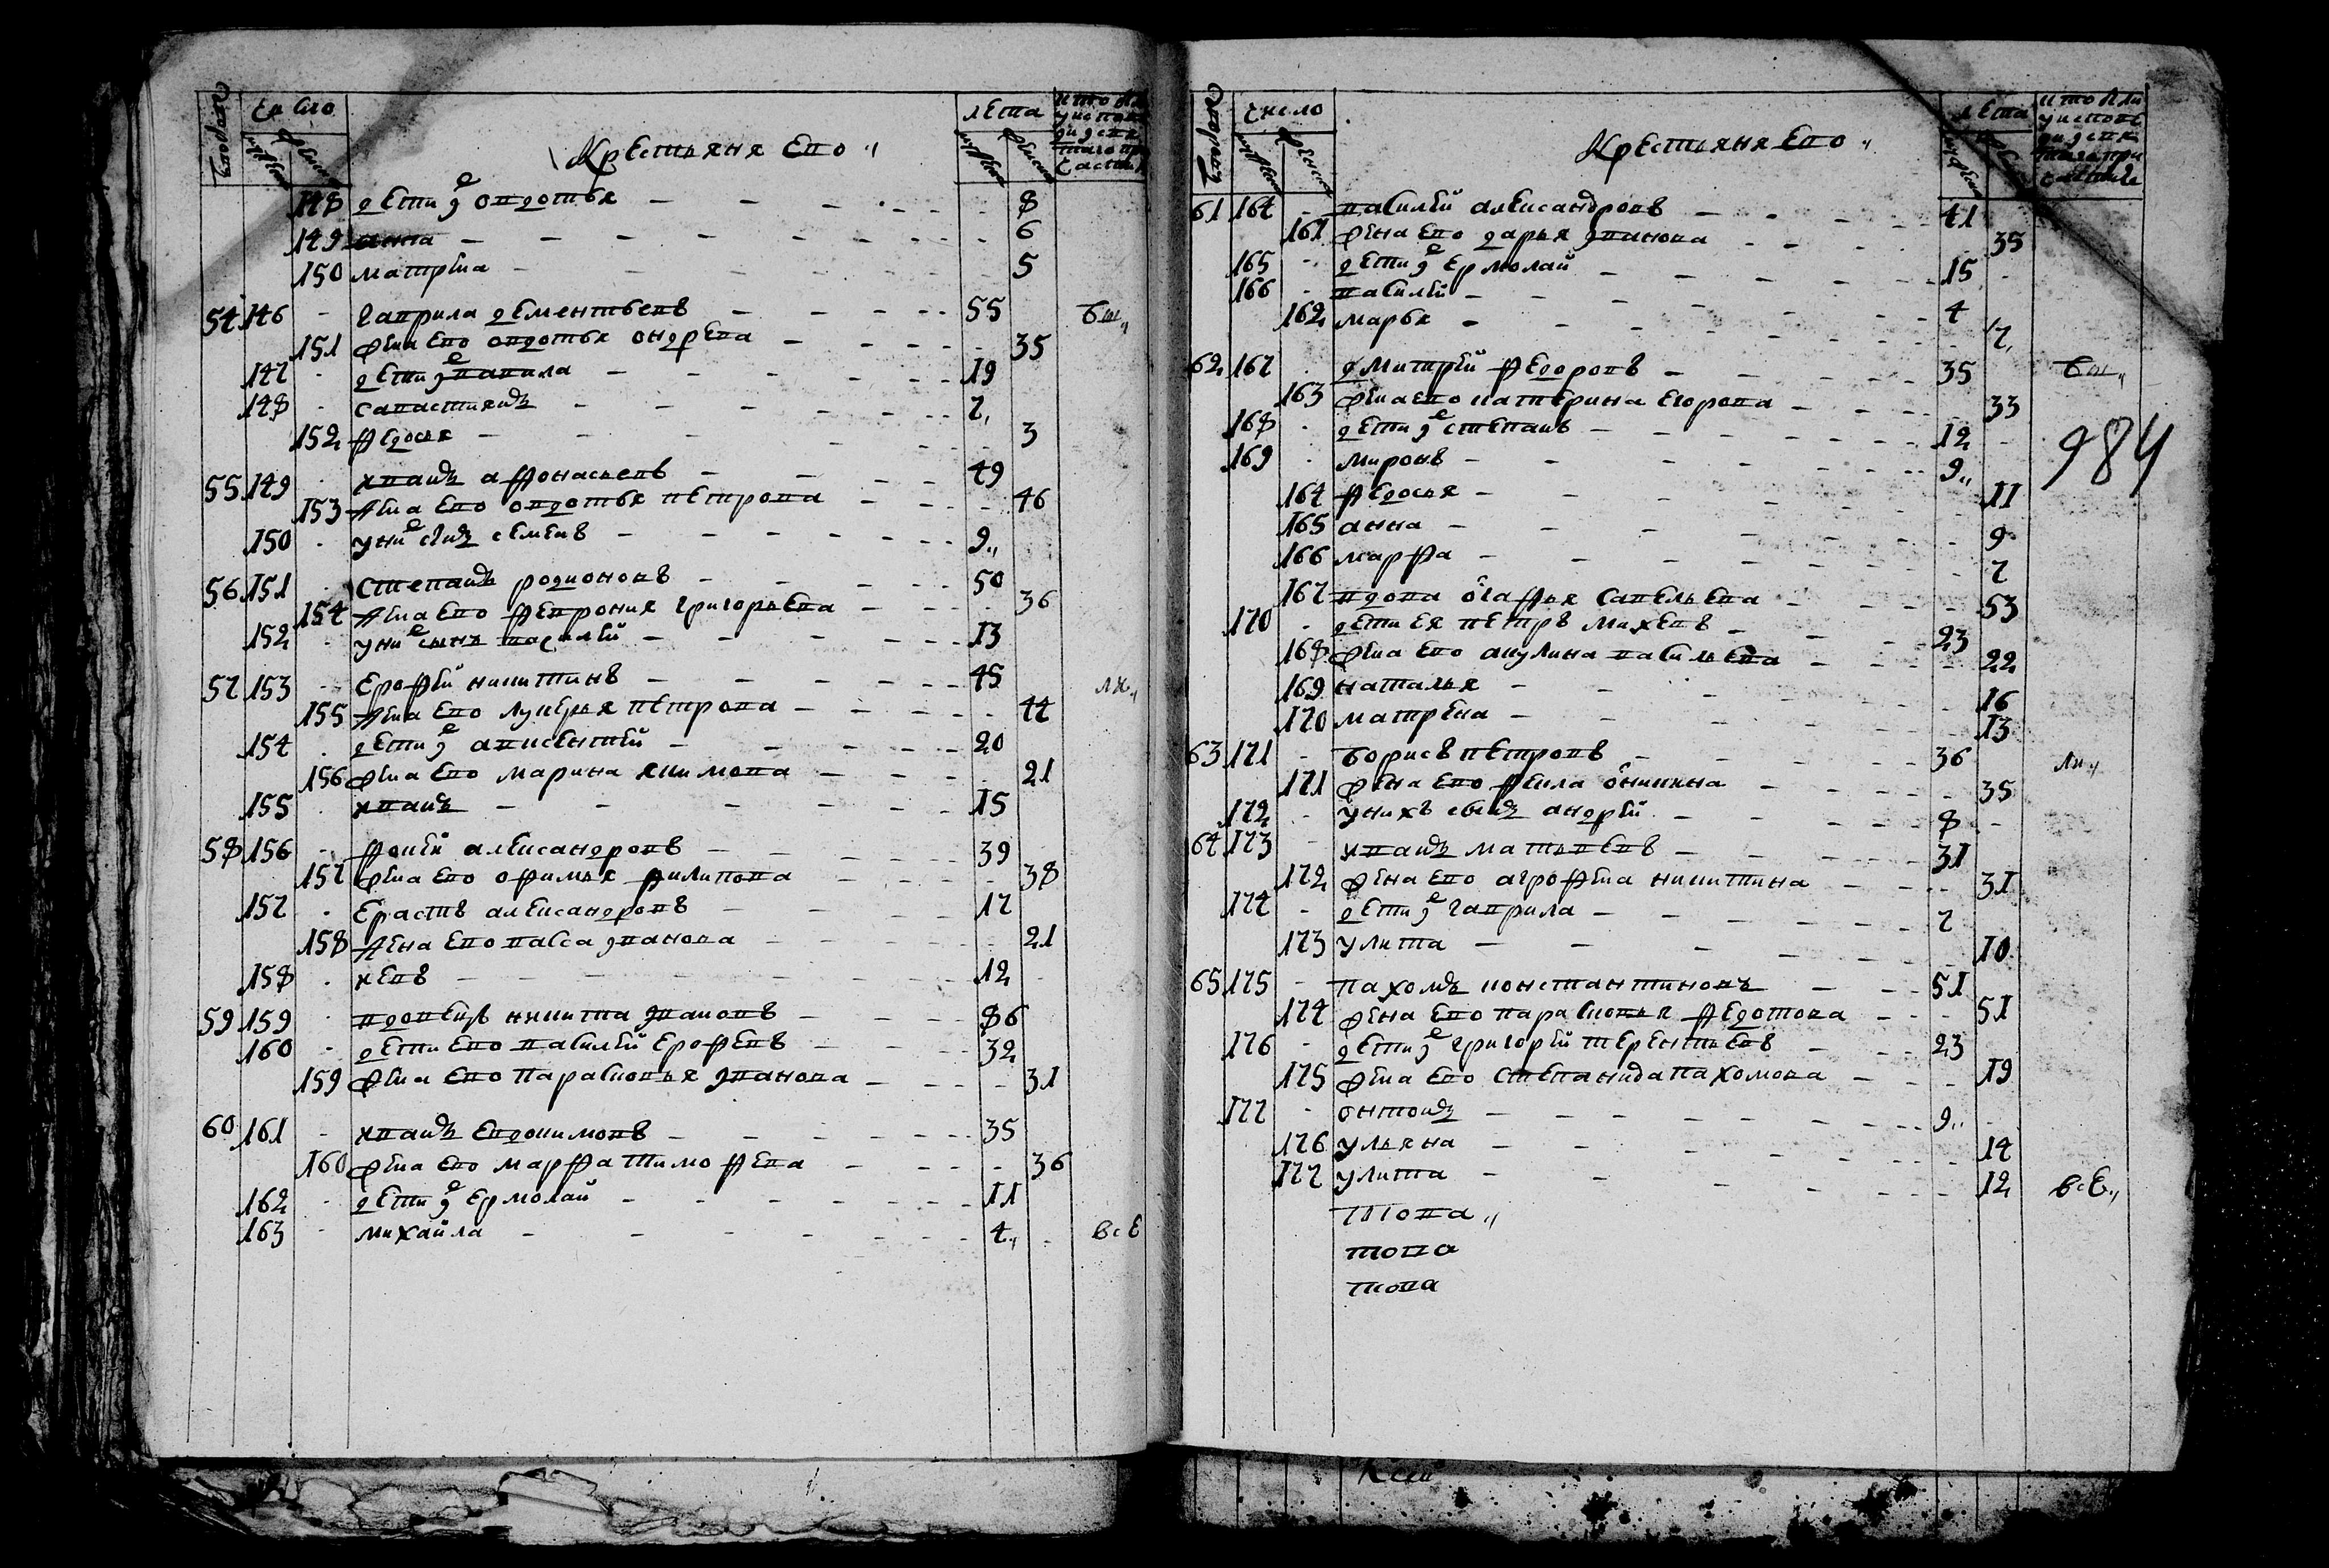 Число
Крестьяня Ево
лета
148 дети ихъ овдотья 8
149 анна 6
150 матрена 5
54 146 гаврила дементьевъ 55 бы
151 жена Ево овдотья ондреева 35
147 дети ихъ вавила 19
148 савастиянъ 7
152 федосья 3
55 149 иванъ афонасьевъ 49
153 жена Ево овдотья петрова 46
150 у них сынъ семенъ 9
56 151 степанъ родионовъ 50
154 жена Ево феврония григорьева 36
152 у них сынъ василей 13
57 153 Ерофей никитинъ 45
155 жена Ево лукерья петрова 44
154 дети ихъ авксентей 20
156 жена Ево марина якимова 21
155 иванъ 15
58 156 фокей александровъ 39
157 жена Ево офимья филипова 38
157 Ерастъ александровъ 17
158 жена Ево васса иванова 21
158 иевъ 12
59 159 вдовецъ никита ивановъ 86
160 дети Ево василей Ерофеевъ 32
159 жена Ево парасковья иванова 31
60 161 иванъ Евдокимовъ 35
160 жена Ево марфа тимофеева 36
162 дети ихъ ермолай 11
163 михайла 4 все
число
Крестьяня Ево
лета
61 164 василей александровъ 41
161 жена Ево дарья иванова 35
165 дети ихъ ермолай 15
166 василей 4
162 марья 7
62 167 дмитрей федоровъ 35 бы
163 жена Ево катерина Егорова 33
168 дети ихъ степанъ 12
984
169 миронъ 9
164 федосья 11
165 анна 9
166 марфа 7
167 вдова огафья савельева 53
170 дети ея петръ михевъ 23
168 жена Ево акулина васильева 22
169 наталья 16
170 матрена 13
63 171 борисъ петровъ 36
171 жена Ево фекла оникина 35
172 у нихъ сынъ андрей 8
64 173 иванъ матьвеевъ 31
172 жена Ево агрофена никитина 31
174 дети ихъ гаврила 7
173 улита 10
65 175 пахомъ константиновъ 51
174 жена Ево парасковья федотова 51
176 дети ихъ григорей терентьевъ 23
175 жена Ево степанида пахомова 19
177 онтонъ 9
176 ульяна 14
177 улита 12 все
това
това
това